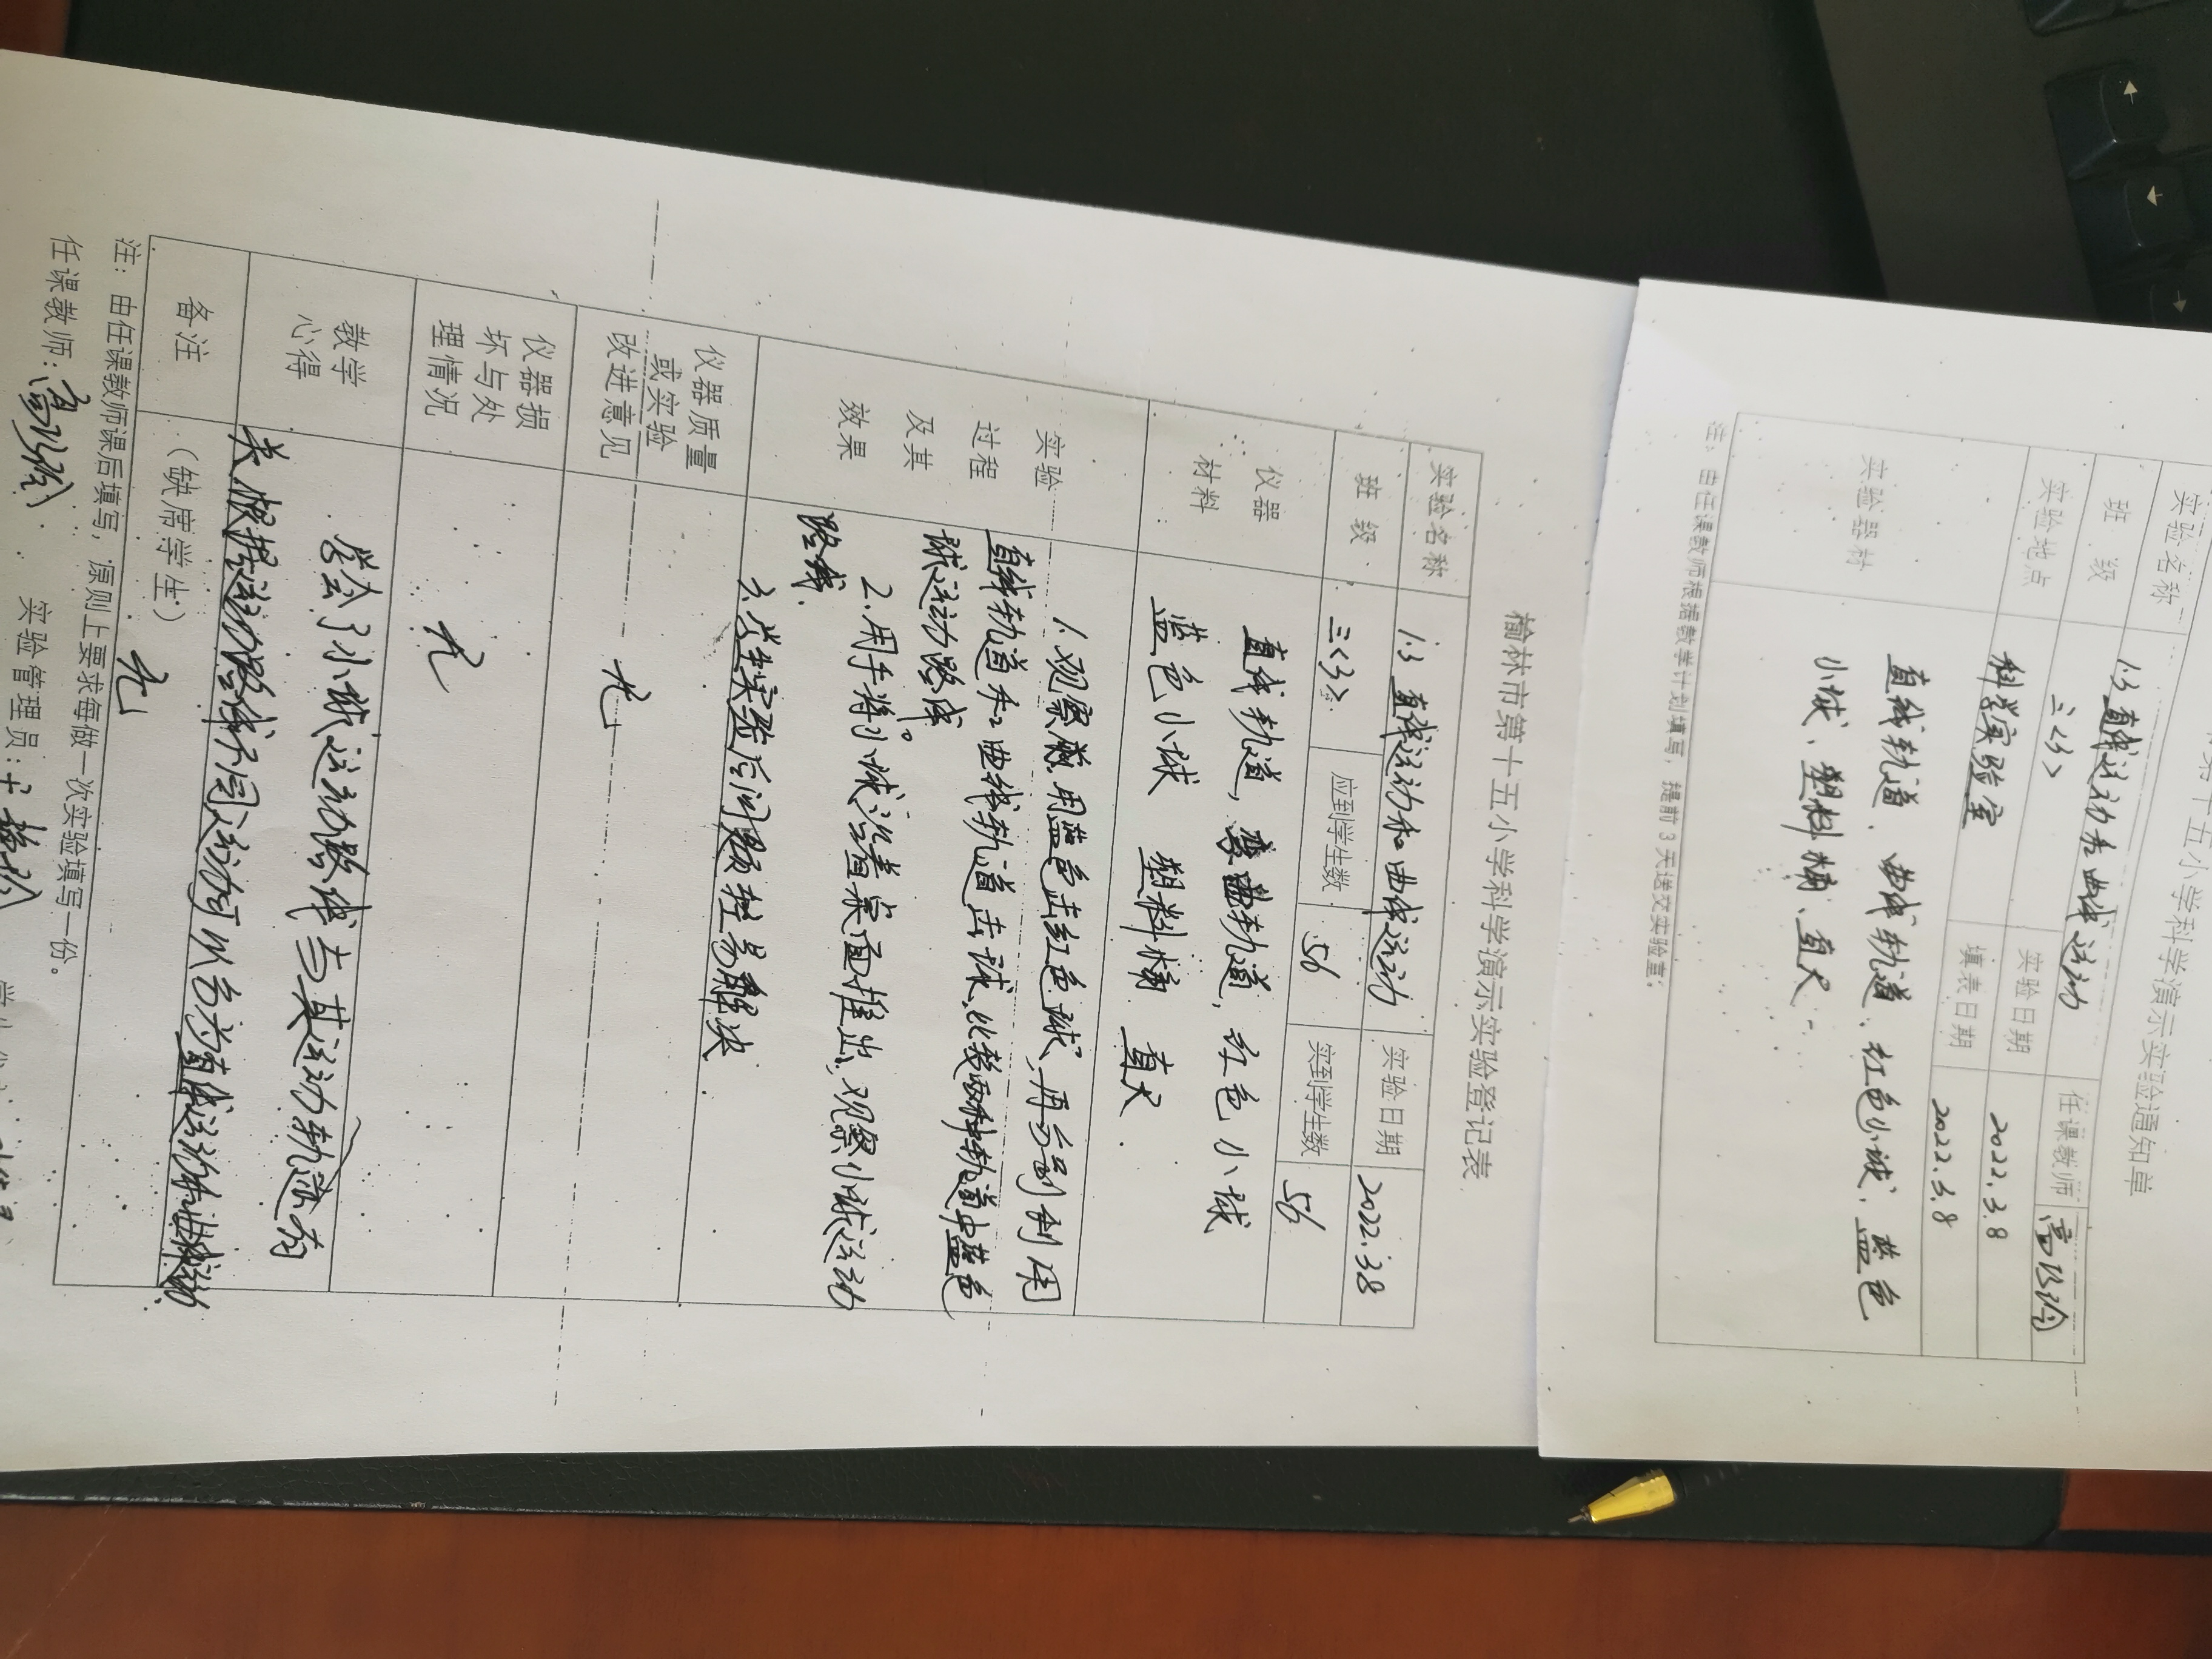 榆林市第十五小学科学演示实验通知单
实验名称 1.3 直线运动和曲线运动
班 级 三<3> 任课教师
实验地点 科学实验室 实验日期 2022.3.8
填表日期 2022.3.8
实验器材 直线轨道、曲线轨道、红色小球、蓝色
小球、塑料桶、直尺
注：由任课教师根据教学计划填写，提前3天送交实验室；
榆林市第十五小学科学演示实验登记表
实验名称 1.3 直线运动和曲线运动 实验日期 2022.3.8
班 级 三<3> 应到学生数 56 实到学生数 56
仪器材料 直线轨道，曲轨道，红色小球
蓝色小球 塑料桶 直尺.
实验过程及其效果 1.观察前用蓝色击红色球，再分别利用
直线轨道和曲线轨道击球、比较两种轨道中蓝色
球运动路线。
2.用手将小球沿着桌面推出，观察小球运动
路线.
3.学生实验后问题轻易解决
仪器质量或实验改进意见 无
仪器损坏与处理情况 无
教学心得 学会了小球运动路线与其运动轨迹有
关，根据运动路线不同运动可以分为直线运动和曲线运动
备注 （缺席学生） 无
注：由任课教师课后填写，原则上要求每做一次实验填写一份。
任课教师： 实验管理员：